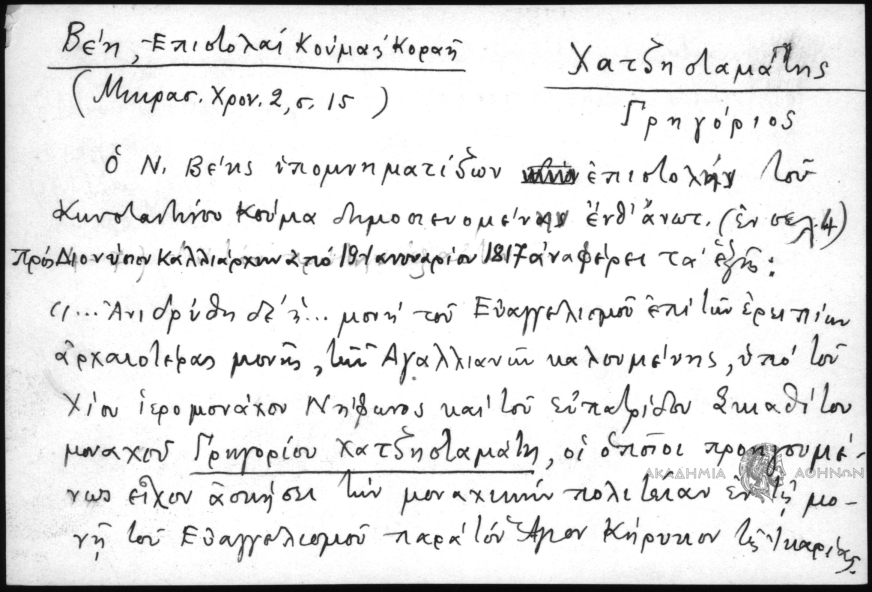 Βέη, Ἐπιστολαί Κούμα ἤ Κοραῆ
(Μικρασ. Χρον. 2, σ. 15)
Χατζησταμάτης
Γρηγόριος
Ὁ Ν. Βέης ὑπομνηματίζων ἐπιστολήν τοῦ
Κωνσταντίνου Κούμα δημοσιευομένην ἔνθ' ἄνωτ. (ἐν σελ. 4)
πρός Διονύσιον Καλλιάρχην ἀπό 19 Ἰανουαρίου 1817 ἀναφέρει τά ἑξῆς:
"... Ἀνιδρύθη δέ ἡ ... μονή τοῦ Εὐαγγελισμοῦ ἐπί τῶν ἐρειπίων
ἀρχαιοτέρας μονῆς, τῶν Ἀγαλλιανῶν καλουμένης, ὑπό τοῦ
Χίου ἱερομονάχου Νήφωνος καί τοῦ εὐπατρίδου Σκιαθίτου
μοναχοῦ Γρηγορίου Χατζησταμάτη, οἱ ὁποῖοι προηγουμέ-
νως εἶχον ἀσκήσει τήν μοναχικήν πολιτείαν ἐν τῇ μο-
νῇ τοῦ Εὐαγγελισμοῦ παρά τόν Ἅγιον Κήρυκον τῆς Ἰκαρίας.
ΑΚΑΔΗΜΙΑ ΑΘΗΝΩΝ